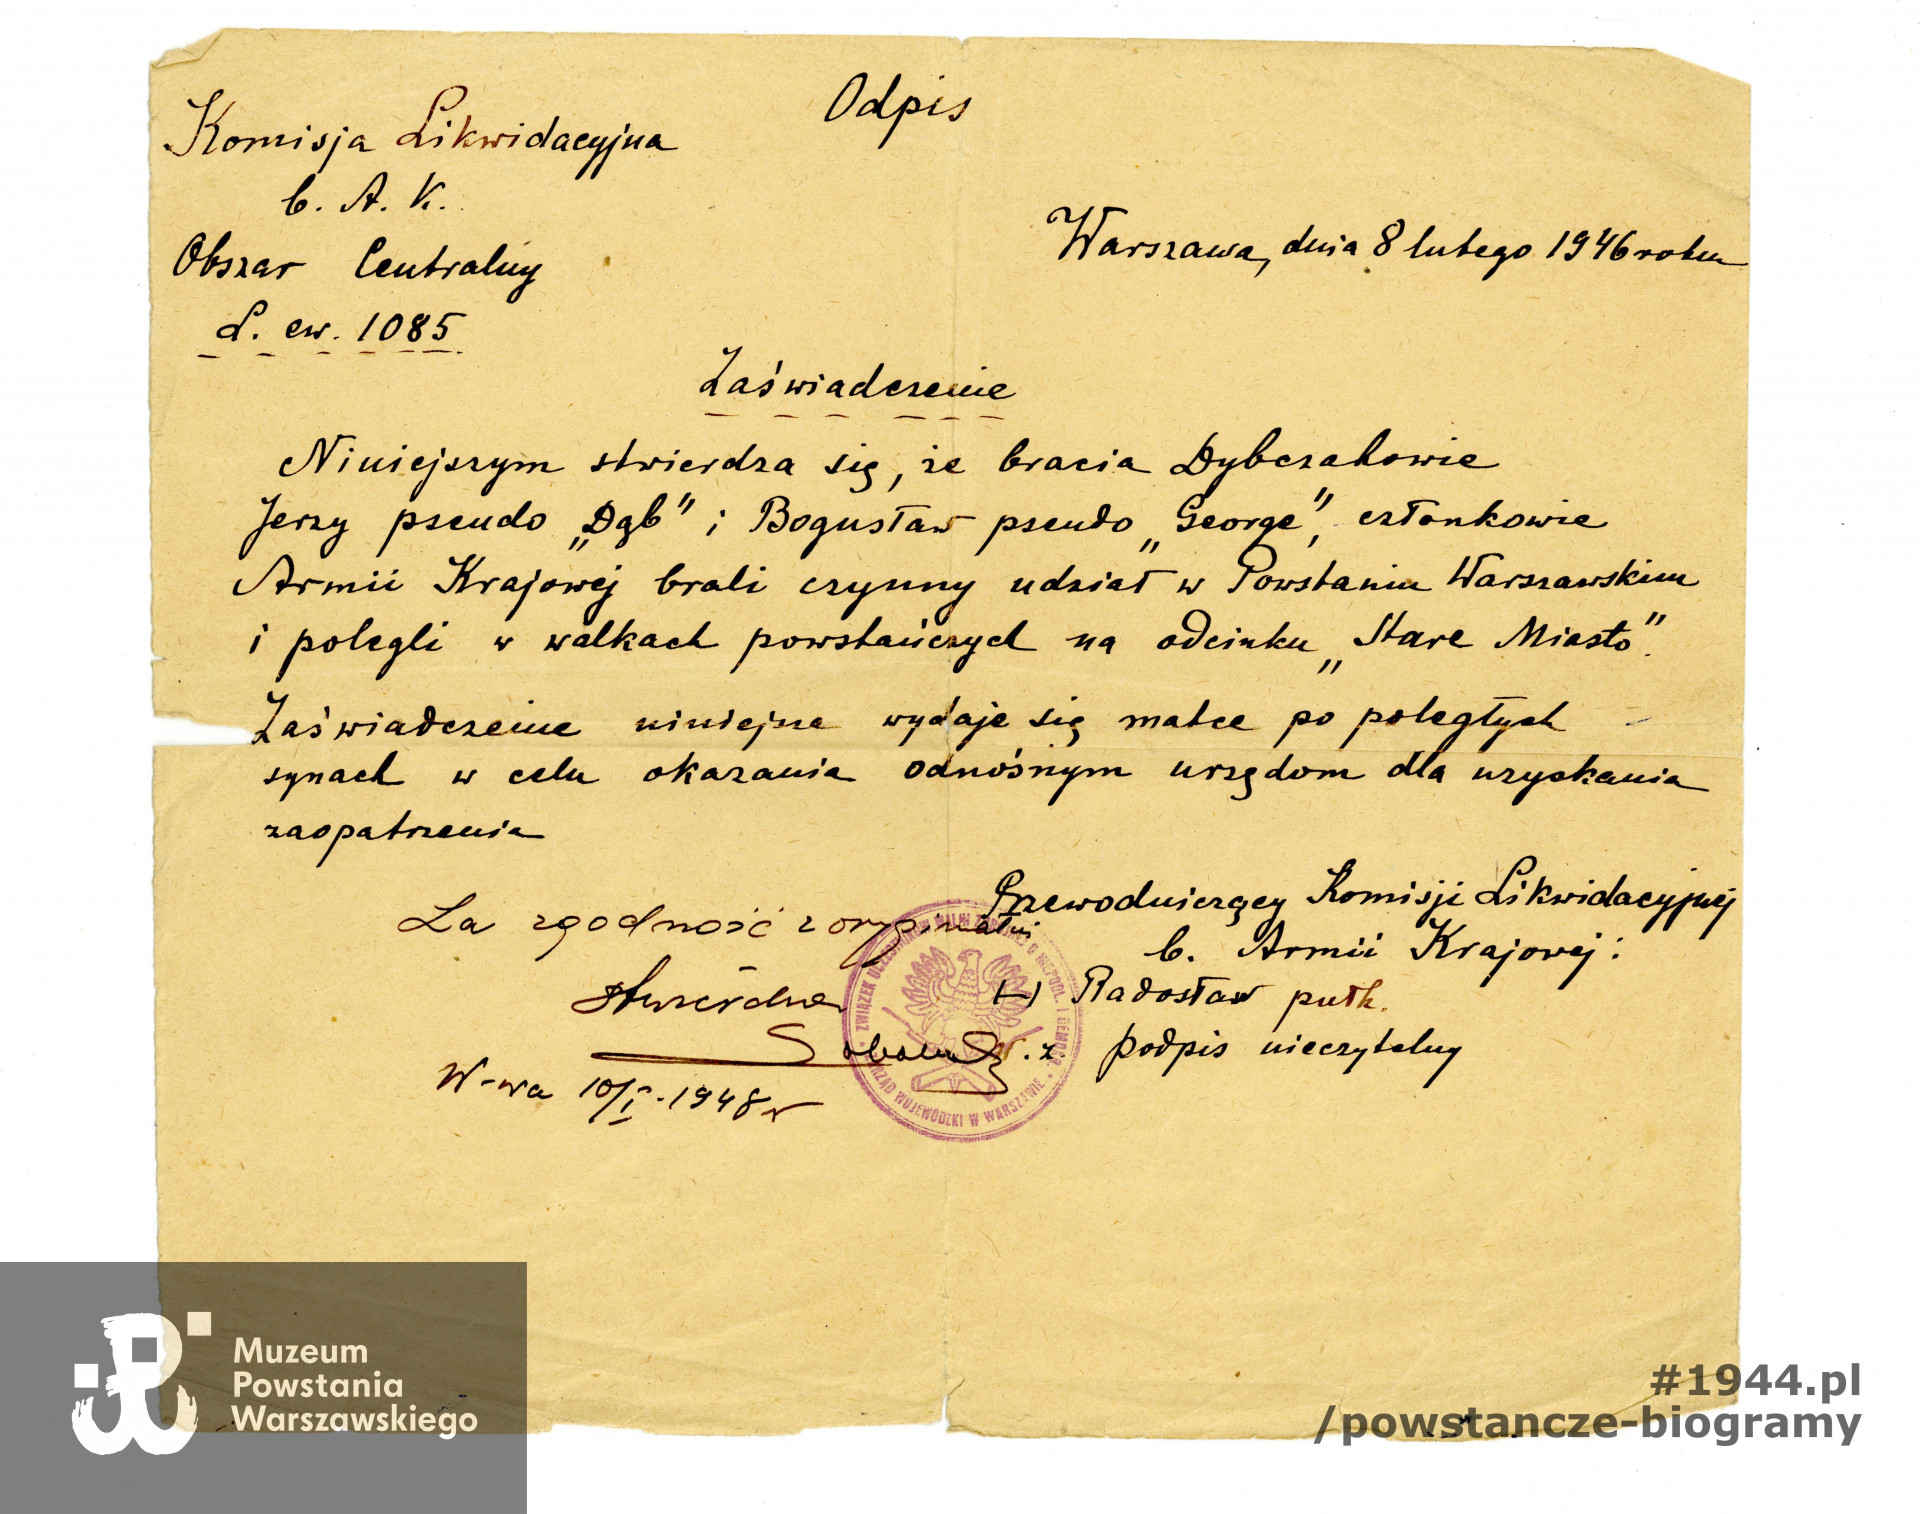 Odpis
Komisja Likwidacyjna
b. A. K.
Obszar Centralny
L. ew. 1085
Warszawa, dnia 8 lutego 1946 roku
Zaświadczenie
Niniejszym stwierdza się, że bracia Dybczakowie
Jerzy pseudo „Dąb" i Bogusław pseudo „George", członkowie
Armii Krajowej brali czynny udział w Powstaniu Warszawskim
i polegli w walkach powstańczych na odcinku „Stare Miasto".
Zaświadczenie niniejsze wydaje się matce po poległych
synach w celu okazania odnośnym urzędom dla uzyskania
zaopatrzenia
Przewodniczący Komisji Likwidacyjnej
b. Armii Krajowej:
(-) Radosław pułk.
w. z. podpis nieczytelny
Za zgodność z oryginałem
stwierdzam
W-wa 10/I.1948 r
ZWIĄZEK UCZESTNIKÓW WALKI ZBROJNEJ O NIEPODL. I DEMOKR.
ZARZĄD WOJEWÓDZKI W WARSZAWIE
Muzeum
Powstania
Warszawskiego
#1944.pl
/powstancze-biogramy